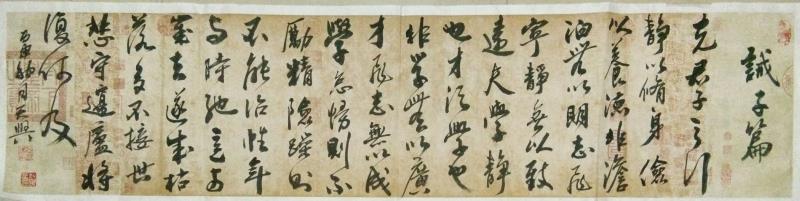 誡子篇
夫君子之行
靜以脩身儉
以養德非澹
泊無以明志非
寧靜無以致
遠夫學靜
也才須學也
非學無以廣
才非志無以成
學怠慢則不
勵精險躁則
不能治性年
与時馳意与
歲去遂成枯
落多不接世
悲守窮廬將
復何及